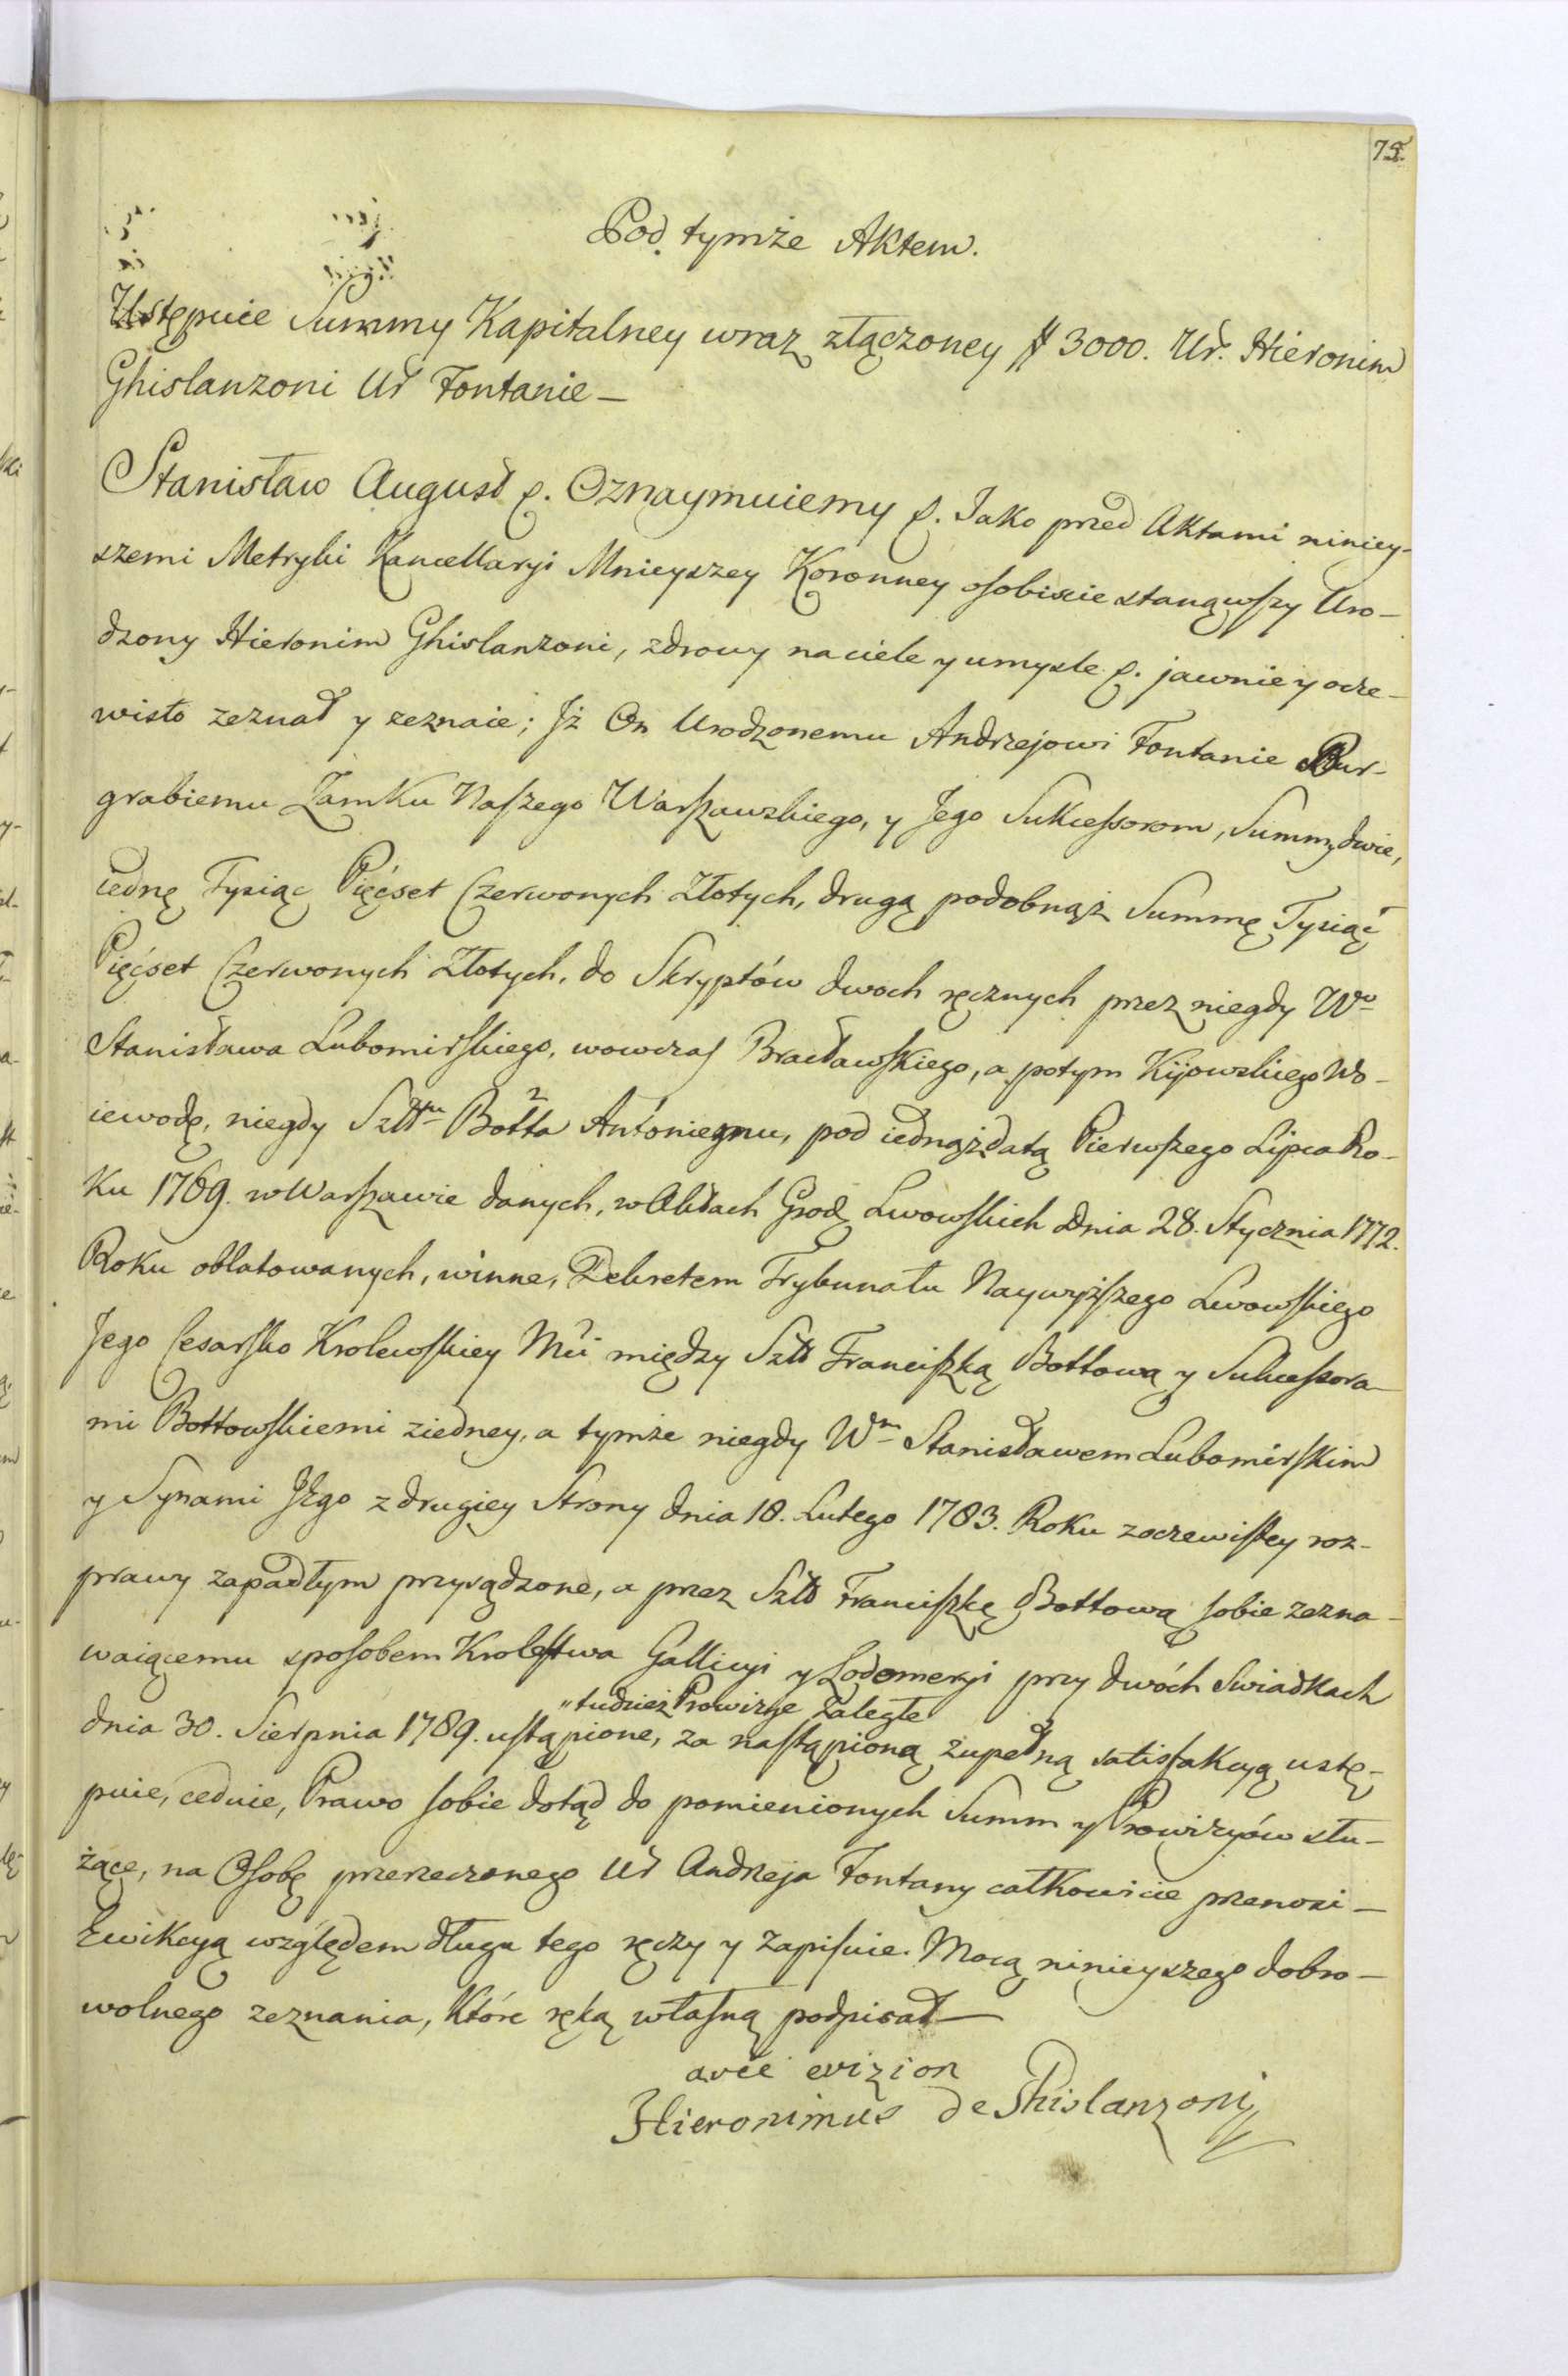 75.
Pod tymże Aktem.
Ustępuie Summy Kapitalney wraz złączoney # 3000. Ur. Hieronim
Ghislanzoni Ur Fontanie —
Stanisław August &. Oznaymuiemy &. Jako przed Aktami niniey-
szemi Metryki Kancellaryi Mnieyszey Koronney osobiscie stanąwszy Uro-
dzony Hieronim Ghislanzoni, zdrowy na ciele y umysle &. jawnie y ocze-
wisto zeznał y zeznaie; Jż On Urodzonemu Andrzejowi Fontanie Bur-
grabiemu Zamku Naszego Warszawskiego, y Jego Sukcessorom, Summy dwie,
iednę Tysiąc Pięćset Czerwonych Złotych, drugą podobnąż Summę Tysiąc
Pięćset Czerwonych Złotych, do Skryptów dwoch ręcznych przez niegdy Wo
Stanisława Lubomirskiego, wowczas Bracławskiego, a potym Kijowskiego Wo-
iewodę, niegdy Szltmu Botta Antoniemu, pod iednąż datą Pierwszego Lipca Ro-
ku 1769. w Warszawie danych, w Aktach Grodz Lwowskich dnia 28. Stycznia 1772.
Roku oblatowanych, winne, Dekretem Trybunału Naywyższego Lwowskiego
Jego Cesarsko Krolewskiey Mci między Szltt Franciszką Bottową y Sukcessora-
mi Bottowskiemi z iedney, a tymże niegdy Wm Stanisławem Lubomirskim
y Synami Jego z drugiey Strony dnia 18. Lutego 1783. Roku z oczewistey roz-
prawy zapadłym przysądzone, a przez Szltt Franciszkę Bottową sobie zezna-
waiącemu sposobem Krolestwa Gallicyi y Lodomeryi przy dwóch Swiadkach
" tudzież Prowizye Zaległe
dnia 30. Sierpnia 1789. ustąpione, za nastąpioną zupełną satisfakcyą ustę-
puie, ceduie, Prawo sobie dotąd do pomienionych Summ y Prowizyów słu-
żące, na Osobę przerzeczonego Ur Andrzeja Fontany całkowicie przenosi —
Ewikcyą względem długu tego ręczy y zapisuie. Mocą ninieyszego dobro-
wolnego zeznania, które ręką własną podpisał —
avec evizion
Hieronimus de Ghislanzoni